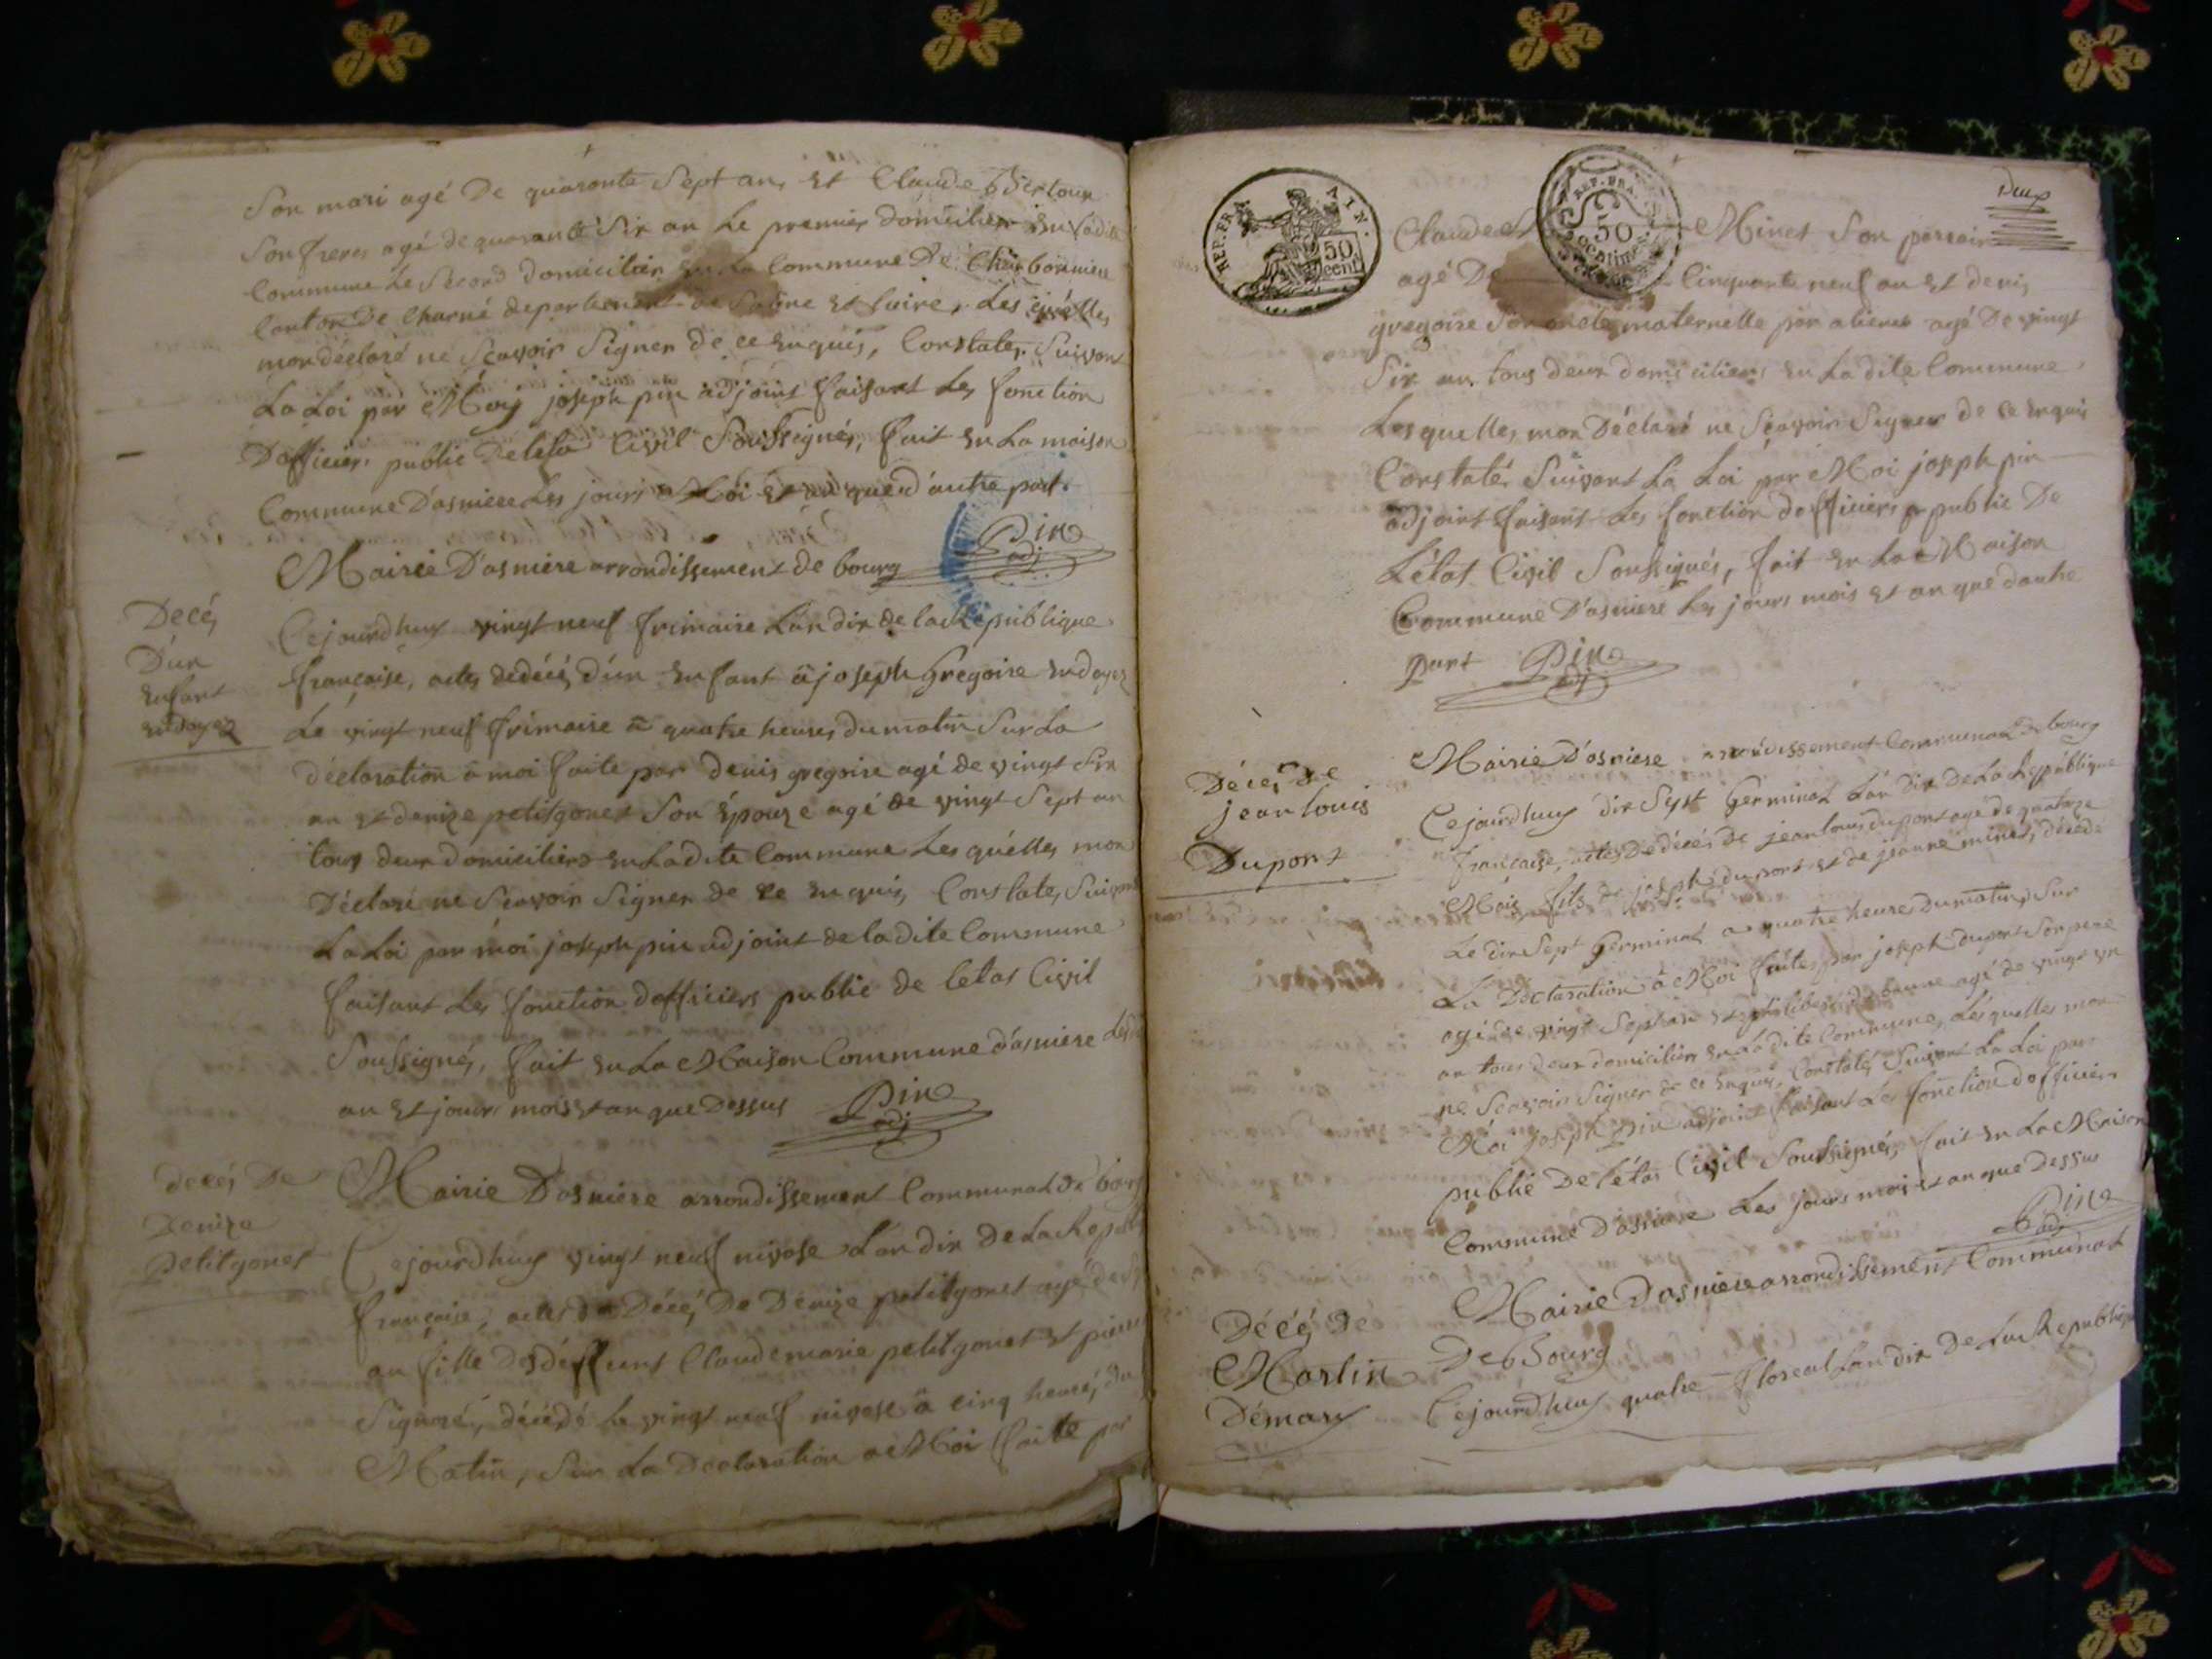 Son mari agé De quaronte Sept an, Et Claude Bertoux
Son frere, agé de quarante Six an Le premier domicilier En ladite
Commune Le Second domicilier En La Commune De
Canton De departement de Saône Et Loire, Les quelles
mon declaré ne Scavoir Signer de ce Enquis, Constater Suivant
La Loi par Moy joseph pin adjoint faisant Les fonction
Dofficier public De Civil Soussignés, fait En La maison
Commune D'asniere Les jours Moi Et an que d'autre part.
Pin
adj
Mairie D'asniere arrondissement de bourg
Decé,
D'un
Enfant
Endoyez
Cejourdhuy vingt neuf frimaire L'an dix de la République
française, acte, de décé, d'un Enfant à joseph Gregoire Endoyez
Le vingt neuf frimaire à quatre heures du matin Sur La
déclaration à moi faite par denis gregoire agé de vingt Six
an Et denize petitgonet Son Épouze agé de vingt Sept an
tous deux domiciliers En Ladite Commune Les quélles mon
Déclaré ne Scavoir Signer de ce Enquis, Constate, Suivant
La Loi par moi joseph pin adjoint de la dite Commune
faisant Les fonction dofficiers public de letat Civil
Soussignés, fait En La Maison Commune d'asniere
an Et jour, mois Et an que Dessus
Pin
adj
Decé, De
Denize
petitgonet
Mairie D'asniere arrondissement Communal De bourg
Cejourdhuy vingt neuf nivose L'an dix De La
française, acte, De Décé, De Denize petitgonet agé de
an fille Des deffunt Claude marie petitgonet Et pierre
décédé Le vingt neuf nivose à cinq heures du
Matin, Sur La Declaration a Moi faite par
REP. FRA
AIN.
50
cent
REP. FRA
50
CENTIMES
Claude Minet Son parrain
agé De Cinquante neuf an Et denis
gregoire Son oncle maternelle par aliance agé De vingt
Six an, tous deux domiciliers En La dite Commune
Les quelles, mon Déclaré ne Scavoir Signer de ce Enquis
Constaté Suivant La Loi par Moi joseph pin
adjoint faisant Les fonction dofficiers public De
L'état Civil Soussignés, fait En La Maison
Commune D'asniere Les jours mois Et an que dautre
part Pin
adj
Décé, De
jean louis
Dupont
Mairie D'asniere arrondissement Communal De bourg
Cejourdhuy dix Sept Germinal L'an Dix De La République
française, acte, De décé, de jean louis dupont agé de quatorze
Mois fils de joseph dupont Et de jeanne minet, décédé
Le dix Sept Germinal a quatre heures du matin, Sur
La Déclaration à Moi faite, par joseph dupont Son pere
agé de vingt Sept an Et philibert agé de vingt un
an tous deux domicilier En La dite Commune, Les quelles mon
ne Scavoir Signer de ce Enquis, Constaté Suivant La Loi par
Moi joseph pin adjoint faisant Les fonction dofficier
public De L'état Civil Soussignés, fait En La Maison
Commune D'asniere Les jours mois Et an que Dessus
Pin
adj
Décé, De
Martin
Démary
Mairie D'asniere arrondissement Communal
De Bourg
Cejourdhuy quatre floreal L'an dix De La République